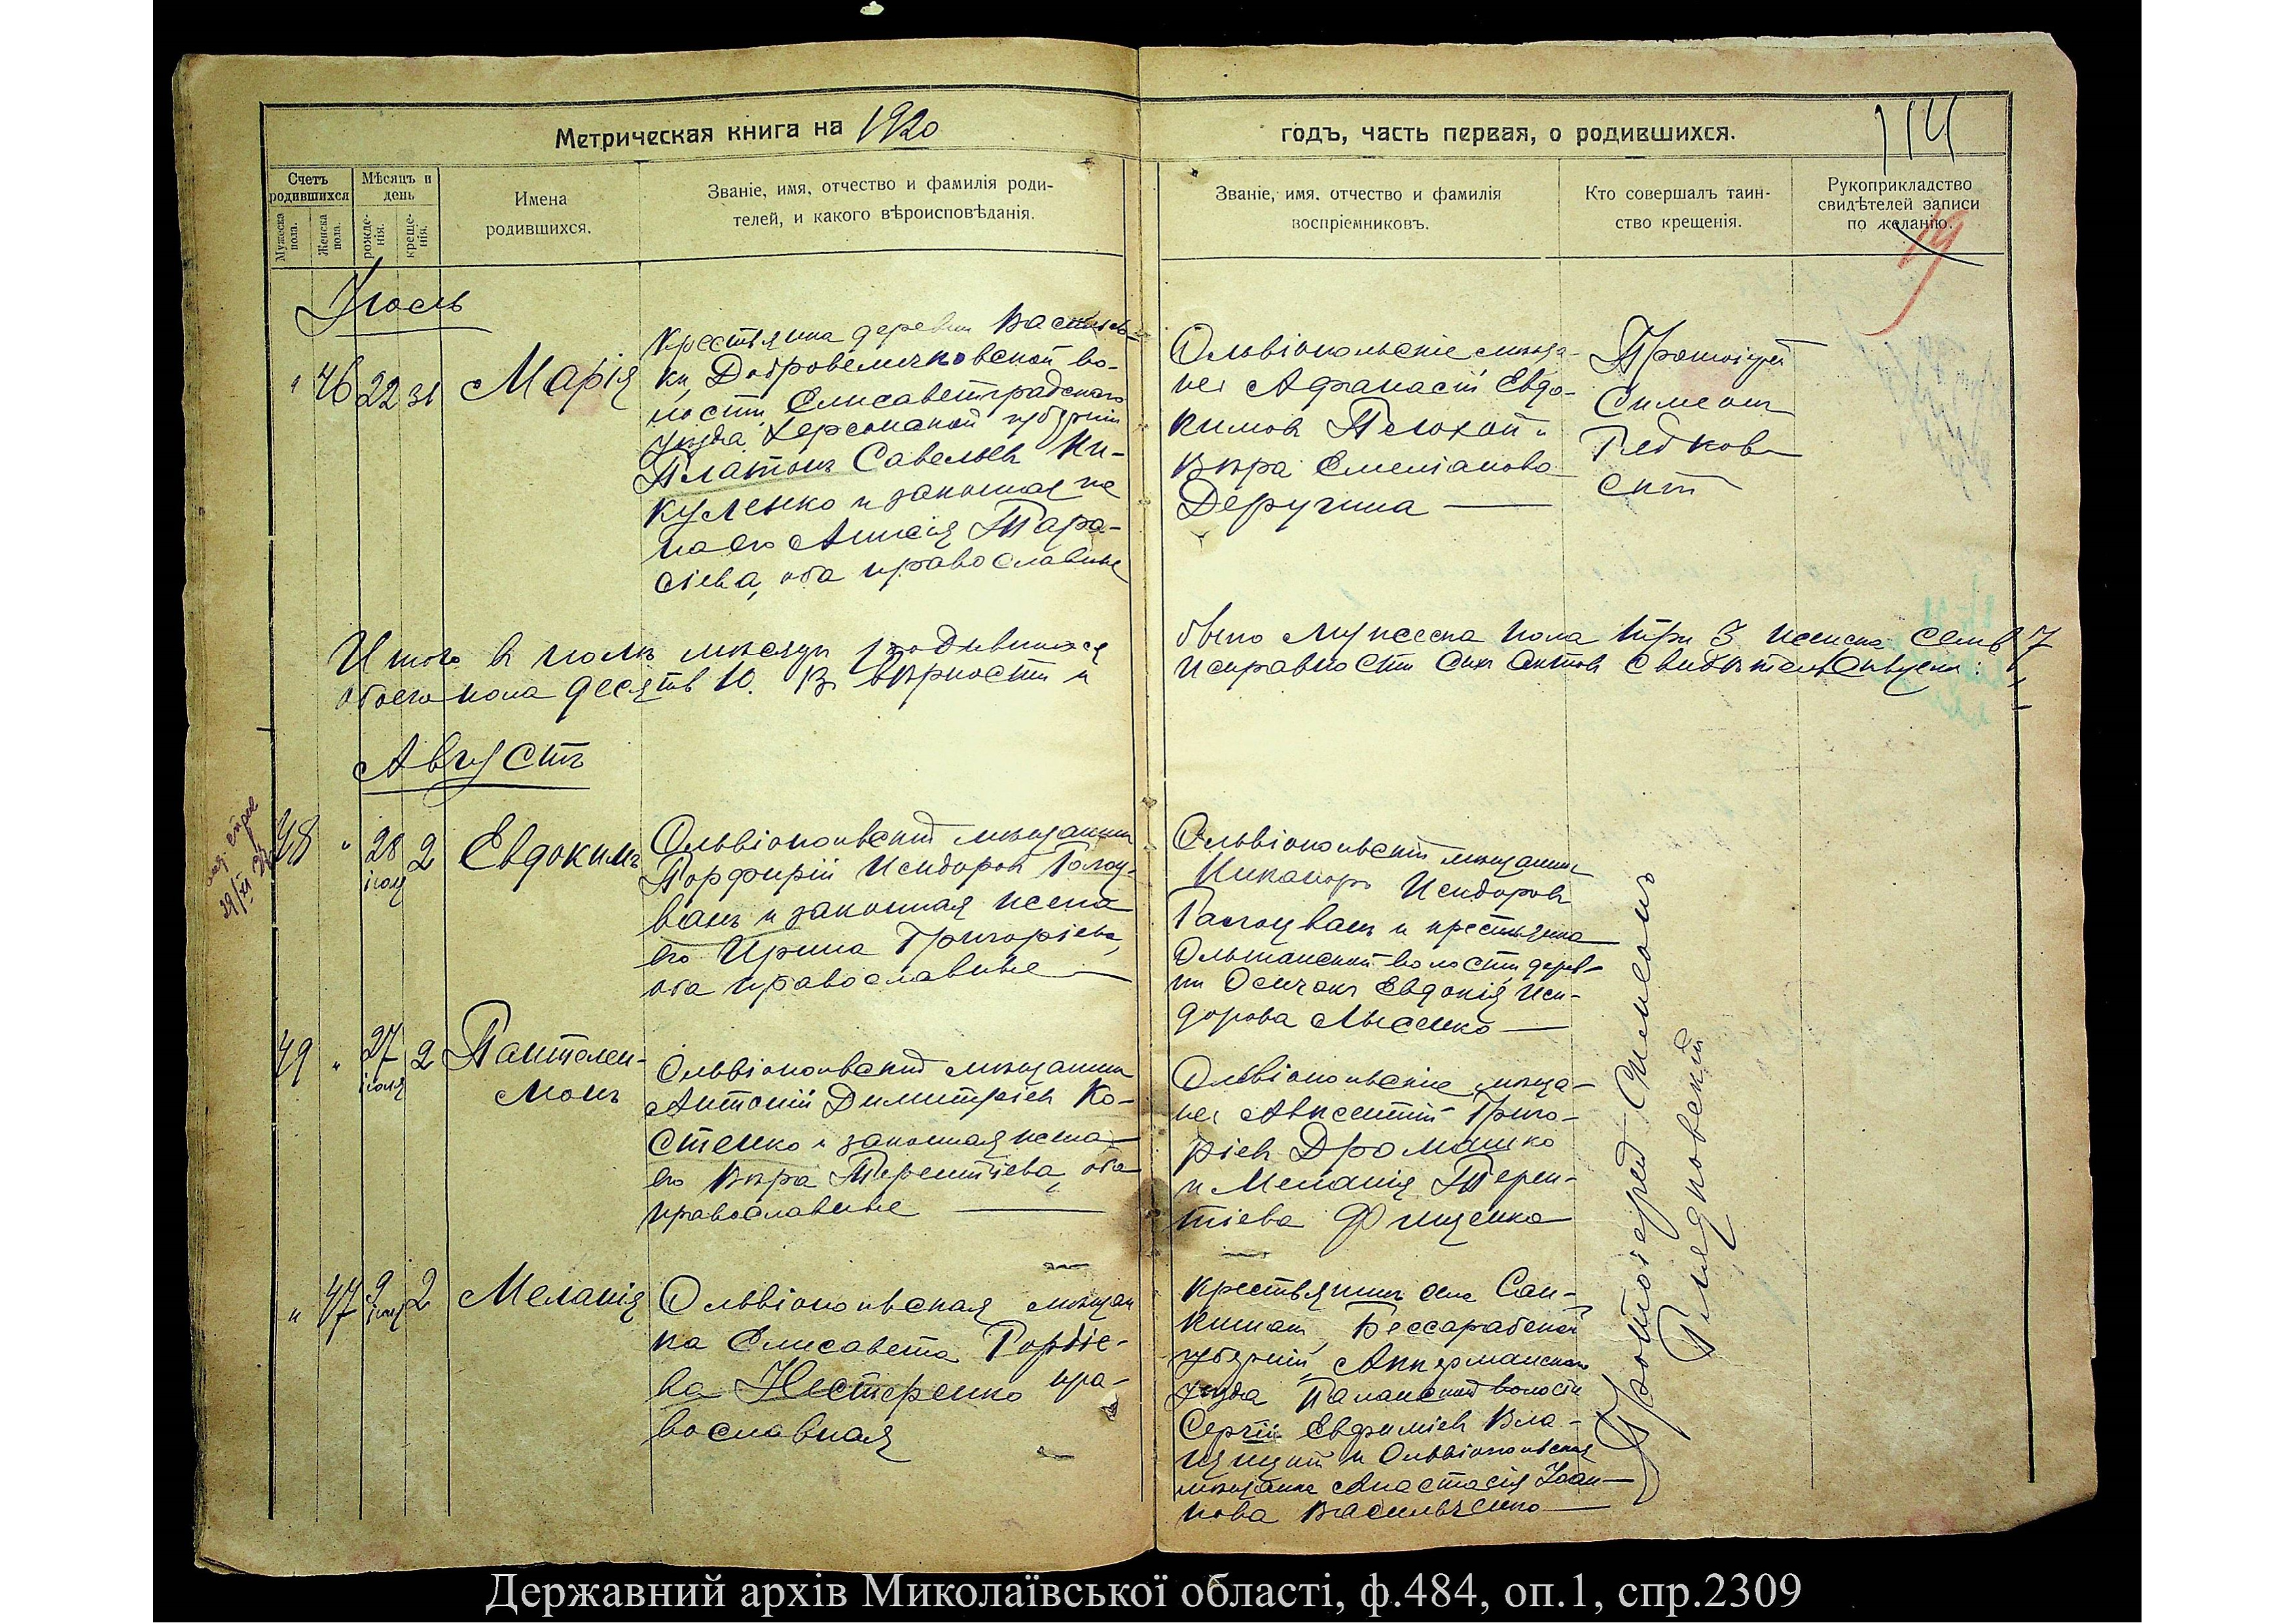 Метрическая книга на 1920
годъ, часть первая, о родившихся.
114
19
Счетъ родившихся
Мужеска пола.
Женска пола.
Мѣсяцъ и день
рожде-нія.
креще-нія.
Имена
родившихся.
Званіе, имя, отчество и фамилія роди-
телей, и какого вѣроисповѣданія.
Званіе, имя, отчество и фамилія
воспріемниковъ.
Кто совершалъ таин-
ство крещенія.
Рукоприкладство
свидѣтелей записи
по желанію.
Іюль
" 46 22 31 Марія
Крестьянина деревни
ки, Добровеличковской во-
лости, Елисаветградскаго
уѣзда Херсонской губерніи
Платонъ Савельевъ Ки-
куленко и законная же
на его Анисія Тара-
сіева, оба православные
Ольвіопольскіе мѣща-
не: Аѳанасій Евдо-
кимовъ Плохой и
Вѣра Емеліанова
Деручина
Протоіерей
Симеонъ
Гледков
скій
Итого въ іюлѣ мѣсяцѣ родившихся
было мужеска пола три 3 женска семь 7
обоего пола десять 10. Въ вѣрности и
исправности сихъ актовъ свидѣтельствуемъ:
Августъ
48 " 28 іюля 2 Евдокимъ
Ольвіопольскій мѣщанинъ
Порфирій Исидоровъ Голо-
ванъ и законная жена
его Ирина Григоріева,
оба православные
Ольвіопольскій мѣщанинъ
Никаноръ Исидоровъ
и крестьянка
Ольшанской волости дерев-
ни Осички Евдокія Иси-
дорова Лысенко
49 " 27 іюля 2 Пантелеи-
монъ
Ольвіопольскій мѣщанинъ
Антоній Димитріевъ Ко-
стенко и законная жена
его Вѣра Терентіева, оба
православные
Ольвіопольскіе мѣща-
не: Авксентій Григо-
ріевъ Дромашко
и Меланія Терен-
тіева Фищенко
" 47 9 іюля 2 Меланія
Ольвіопольская мѣщан
ка Елисавета Гордіе-
ва Нестеренко пра-
вославная
Крестьянинъ села
Бессарабской
губерніи, Аккерманскаго
уѣзда Паланской волости
Сергій Евѳиміевъ
и Ольвіопольская
мѣщанка Анастасія Іоан-
нова Васильченко
Протоіерей Симеонъ
Державний архів Миколаївської області, ф.484, оп.1, спр.2309